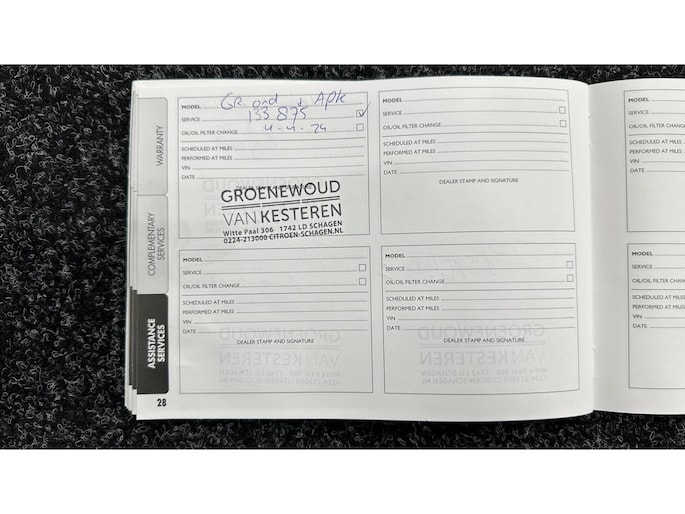 WARRANTY
COMPLEMENTARY
SERVICES
ASSISTANCE
SERVICES
28
MODEL GR ond + Apk
SERVICE 133 875
OIL/OIL FILTER CHANGE 4-4-24
SCHEDULED AT MILES
PERFORMED AT MILES
VIN
DATE
DEALER STAMP AND SIGNATURE
GROENEWOUD
VAN KESTEREN
Witte Paal 306 1742 LD SCHAGEN
0224-213000 CITROEN-SCHAGEN.NL
MODEL
SERVICE
OIL/OIL FILTER CHANGE
SCHEDULED AT MILES
PERFORMED AT MILES
VIN
DATE
DEALER STAMP AND SIGNATURE
MODEL
SERVICE
OIL/OIL FILTER CHANGE
SCHEDULED AT MILES
PERFORMED AT MILES
VIN
DATE
DEALER STAMP AND SIGNATURE
MODEL
SERVICE
OIL/OIL FILTER CHANGE
SCHEDULED AT MILES
PERFORMED AT MILES
VIN
DATE
DEALER STAMP AND SIGNATURE
MODEL
SERVICE
OIL/OIL FILTER
SCHEDULED AT M
PERFORMED AT M
VIN
DATE
MODEL
SERVICE
OIL/OIL FILTER
SCHEDULED AT M
PERFORMED AT M
VIN
DATE